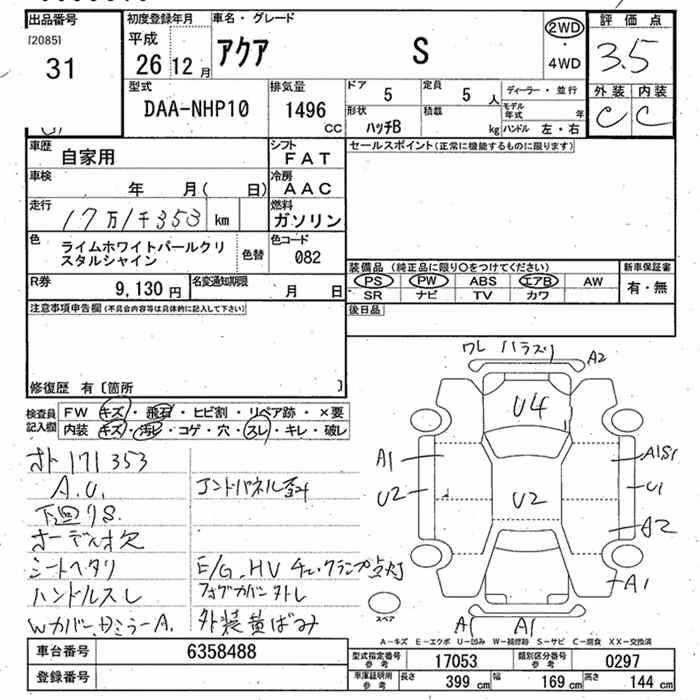 出品番号
[2085]
31
初度登録年月
平成
26 12 月
車名・グレード
アクア S
2WD
・
4WD
評価点
3.5
外装 内装
C C
型式
DAA-NHP10
排気量
1496
CC
ドア
5
定員
5 人
形状
ハッチB
積載
kg
ディーラー・並行
モデル年式 年
ハンドル 左・右
車歴
自家用
シフト
FAT
車検
年 月( 日)
冷房
AAC
走行
17万1千353 km
燃料
ガソリン
色
ライムホワイトパールクリ
スタルシャイン
色替
色コード
082
R券
9,130 円
名変通知期限
月 日
セールスポイント(正常に機能するものに限ります)
装備品 (純正品に限り○をつけてください)
PS PW ABS エアB AW
SR ナビ TV カワ
新車保証書
有・無
後日品
注意事項申告欄(不具合内容等は具体的に記入して下さい)
修復歴 有〔箇所 〕
検査員
記入欄
FW キズ・飛石・ヒビ割・リペア跡・×要
内装 キズ・汚れ・コゲ・穴・スレ・キレ・破レ
オト171353
A.U.
下廻りS.
オーディオ欠
シートヘタリ
ハンドルスレ
Wカバー、ミラーA.
エンドパネル歪
E/G、HVチェックランプ点灯
フォグカバー外レ
外装黄ばみ
ワレ ハズリ
A2
U4
A1
A1S1
U2
U2
U1
A2
A1
A
A1
スペア
A-キズ E-エクボ U-凹み W-補修跡 S-サビ C-腐食 XX-交換済
車台番号
6358488
登録番号
型式指定番号
参考
17053
類別区分番号
参考
0297
車庫証明用
参考
長さ
399 cm
幅
169 cm
高さ
144 cm